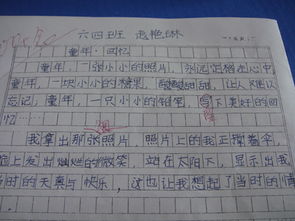 六四班
童年·回忆
童年,一张小小的照片,永远 在心中
童年,一块小小的糖果, 让人难以
忘记,童年,一只小小的 ,写下美好的回
忆……
我拿出那张照片,照片上的我正撑着伞,
脸上发出灿烂的微笑,站在太阳下,显示出我
当时的天真与快乐,这也让我想起了当时的情